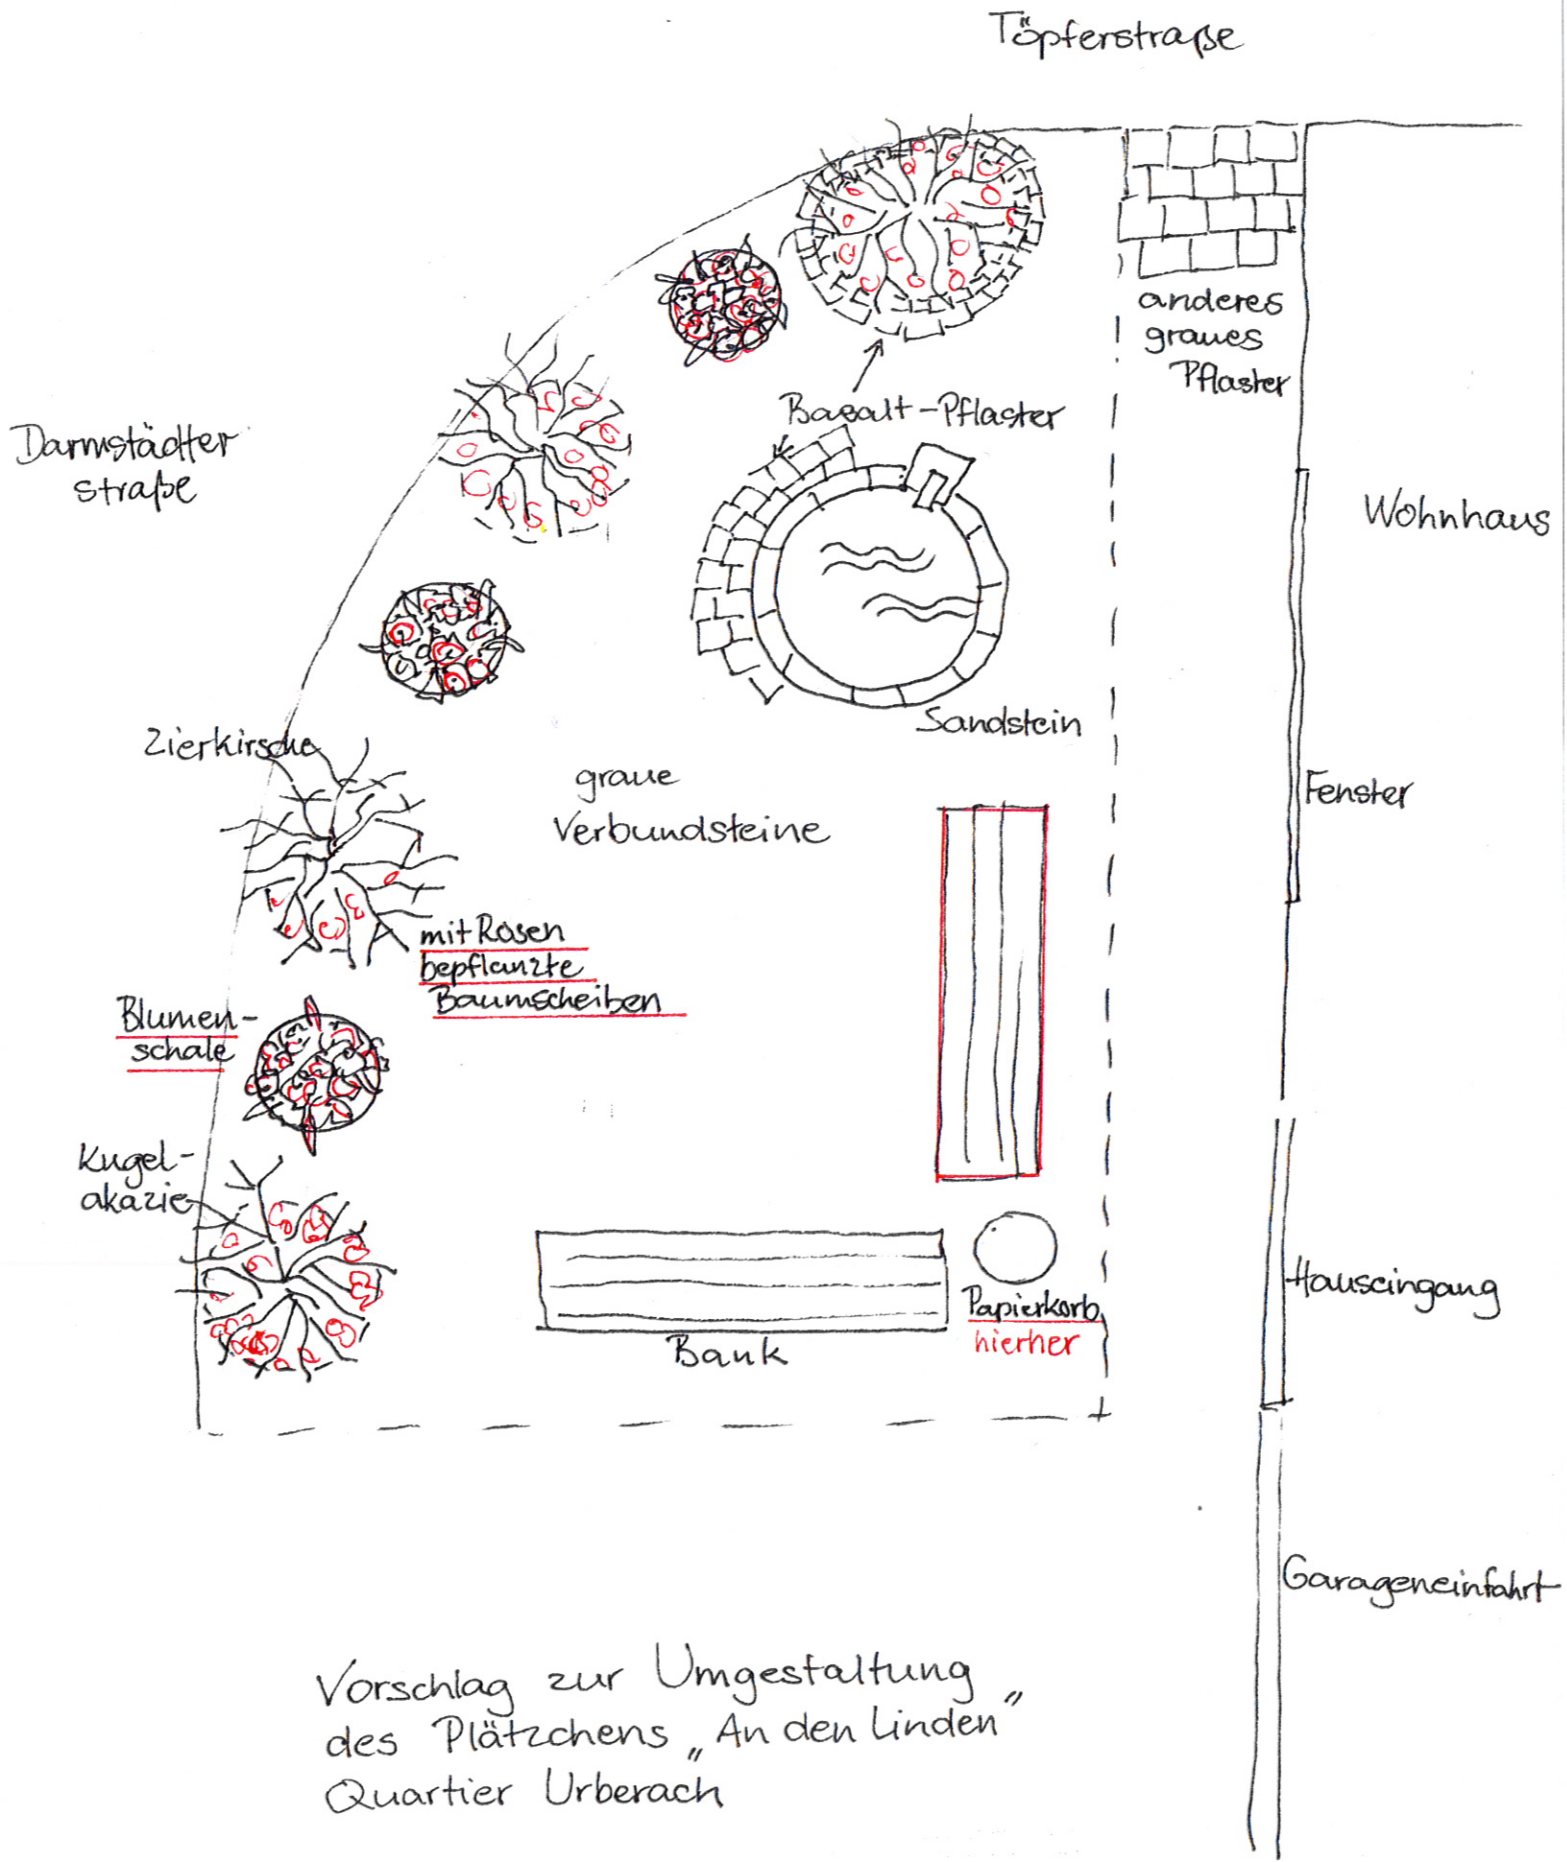 Töpferstraße
anderes
graues
Pflaster
Basalt-Pflaster
Darmstädter
straße
Wohnhaus
Sandstein
Zierkirsche
graue
Verbundsteine
Fenster
mit Rosen
bepflanzte
Baumscheiben
Blumen-
schale
Kugel-
akazie
Hauseingang
Papierkorb
hierher
Bank
Garageneinfahrt
Vorschlag zur Umgestaltung
des Plätzchens „An den Linden"
Quartier Urberach